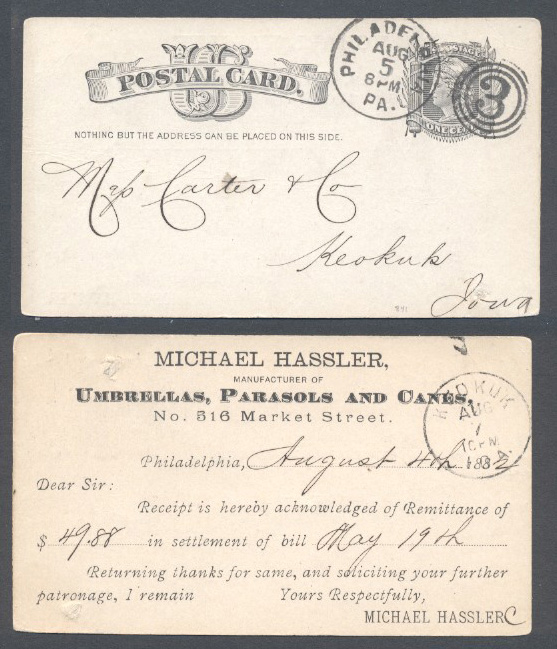 US
POSTAL CARD.
NOTHING BUT THE ADDRESS CAN BE PLACED ON THIS SIDE.
PHILADELPHIA
AUG
5
8PM
PA.
POSTAGE
ONE CENT
3
Carter & Co
Keokuk
Iowa
MICHAEL HASSLER,
MANUFACTURER OF
UMBRELLAS, PARASOLS AND CANES,
No. 516 Market Street.
KEOKUK
AUG
7
10PM
IOWA.
Philadelphia, August 4th 1882
Dear Sir:
Receipt is hereby acknowledged of Remittance of
$ 49.88 in settlement of bill May 19th
Returning thanks for same, and soliciting your further
patronage, I remain Yours Respectfully,
MICHAEL HASSLER